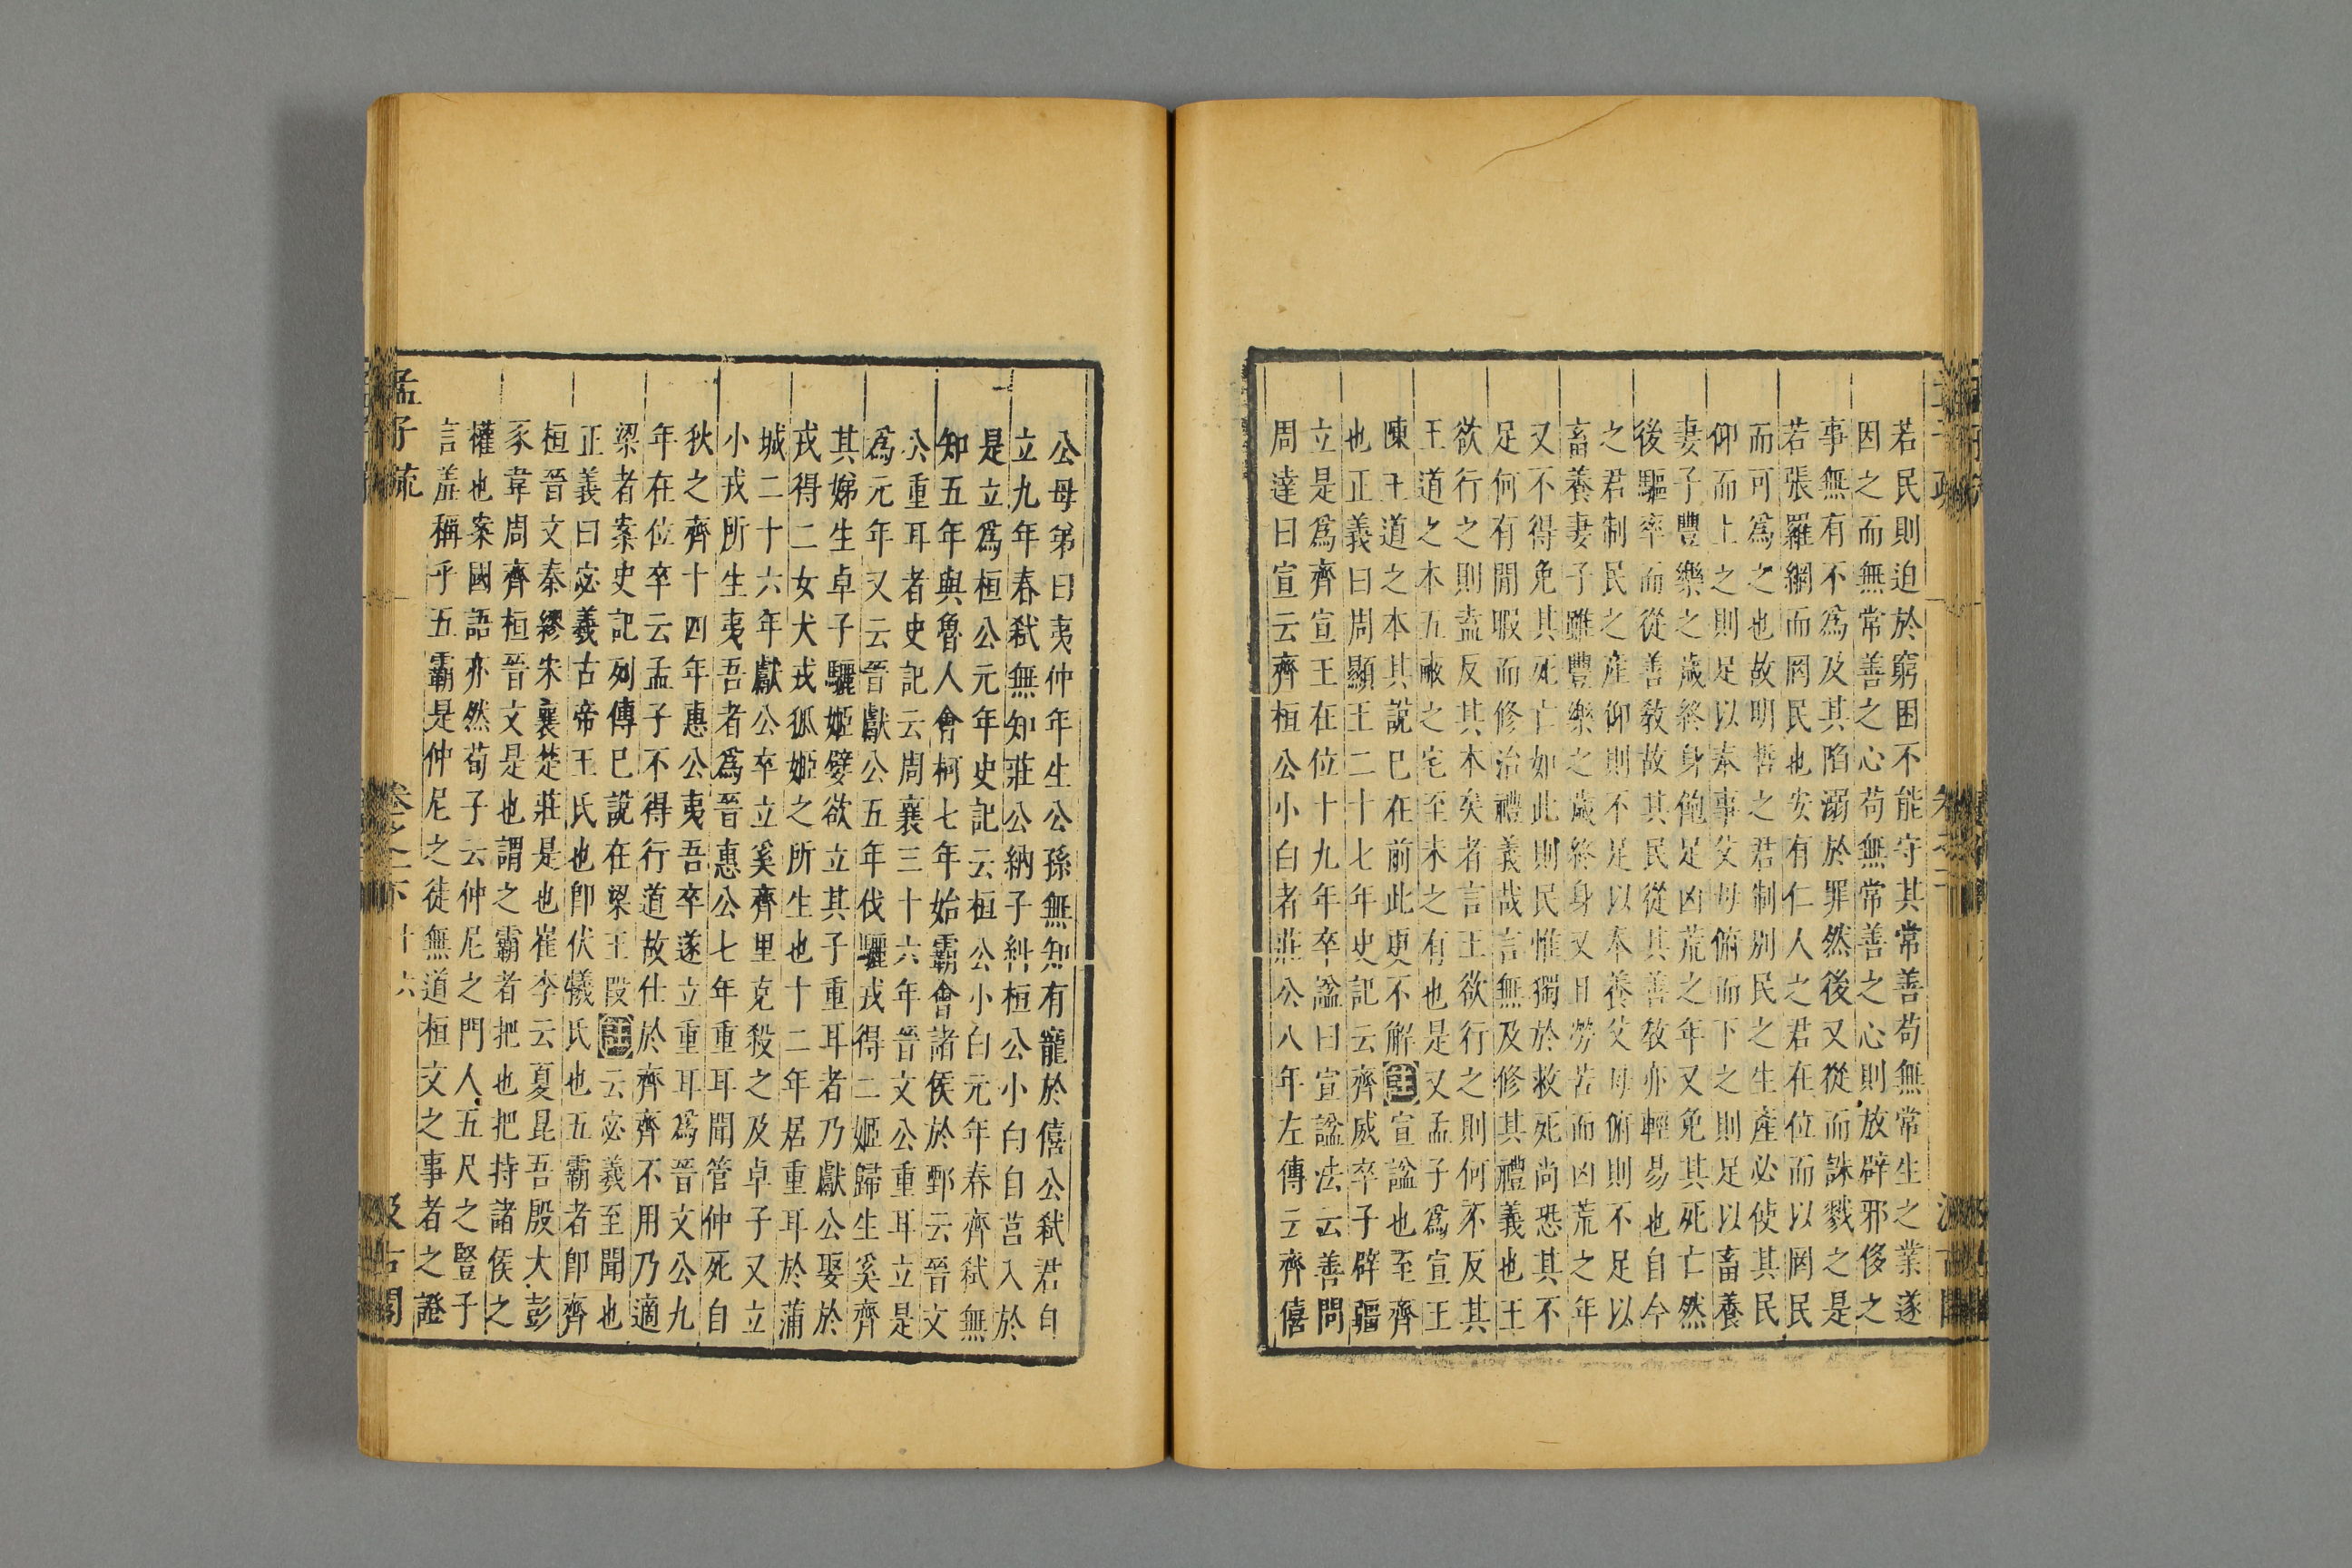 若民則迫於窮困不能守其常善苟無常生之業遂
因之而無常善之心苟無常善之心則放辟邪侈之
事無有不為及其陷溺於罪然後又從而誅戮之是
若張羅網而罔民也安有仁人之君在位而以罔民
而可為之也故明哲之君制别民之生產必使其民
仰而上之則足以奉事父母俯而下之則足以畜養
妻子豐樂之歲終身飽足凶荒之年又免其死亡然
後驅率而從善教故其民從其善教亦輕易也自今
之君制民之產仰則不足以奉養父母俯則不足以
畜養妻子雖豐樂之歲終身又且勞苦而凶荒之年
又不得免其死亡如此則民惟獨於救死尚恐其不
足何有閒暇而修治禮義哉言無及修其禮義也王
欲行之則盍反其本矣者言王欲行之則何不反其
王道之本五畞之宅至未之有也是又孟子為宣王
陳王道之本其說已在前此更不解注宣諡也至齊
也正義曰周顯王二十七年史記云齊威卒子辟疆
立是爲齊宣王在位十九年卒諡曰宣諡法云善問
周達曰宣云齊桓公小白者莊公八年左傳云齊僖
公母弟曰夷仲年生公孫無知有寵於僖公弑君自
立九年春弑無知莊公納子糾桓公小白自莒入於
是立爲桓公元年史記云桓公小白元年春齊弑無
知五年與魯人會柯七年始霸會諸侯於鄄云晉文
公重耳者史記云周襄三十六年晉文公重耳立是
爲元年又云晉獻公五年伐驪戎得二姬歸生奚齊
其娣生卓子驪姬嬖欲立其子重耳者乃獻公娶於
戎得二女犬戎狐姬之所生也十二年居重耳於蒲
城二十六年獻公卒立奚齊里克殺之及卓子又立
小戎所生夷吾者爲晉惠公七年重耳聞管仲死自
狄之齊十四年惠公夷吾卒遂立重耳爲晉文公九
年在位卒云孟子不得行道故仕於齊齊不用乃適
梁者案史記列傳巳說在梁王段注云宓羲至聞也
正義曰宓羲古帝王氏也卽伏犧氏也五霸者卽齊
桓晉文秦繆宋襄楚莊是也崔李云夏昆吾殷大彭
豕韋周齊桓晉文是也謂之霸者把也把持諸侯之
權也案國語亦然荀子云仲尼之門人五尺之豎子
言羞稱乎五霸是仲尼之徒無道桓文之事者之證
孟子疏
卷之一下
十六
汲古閣